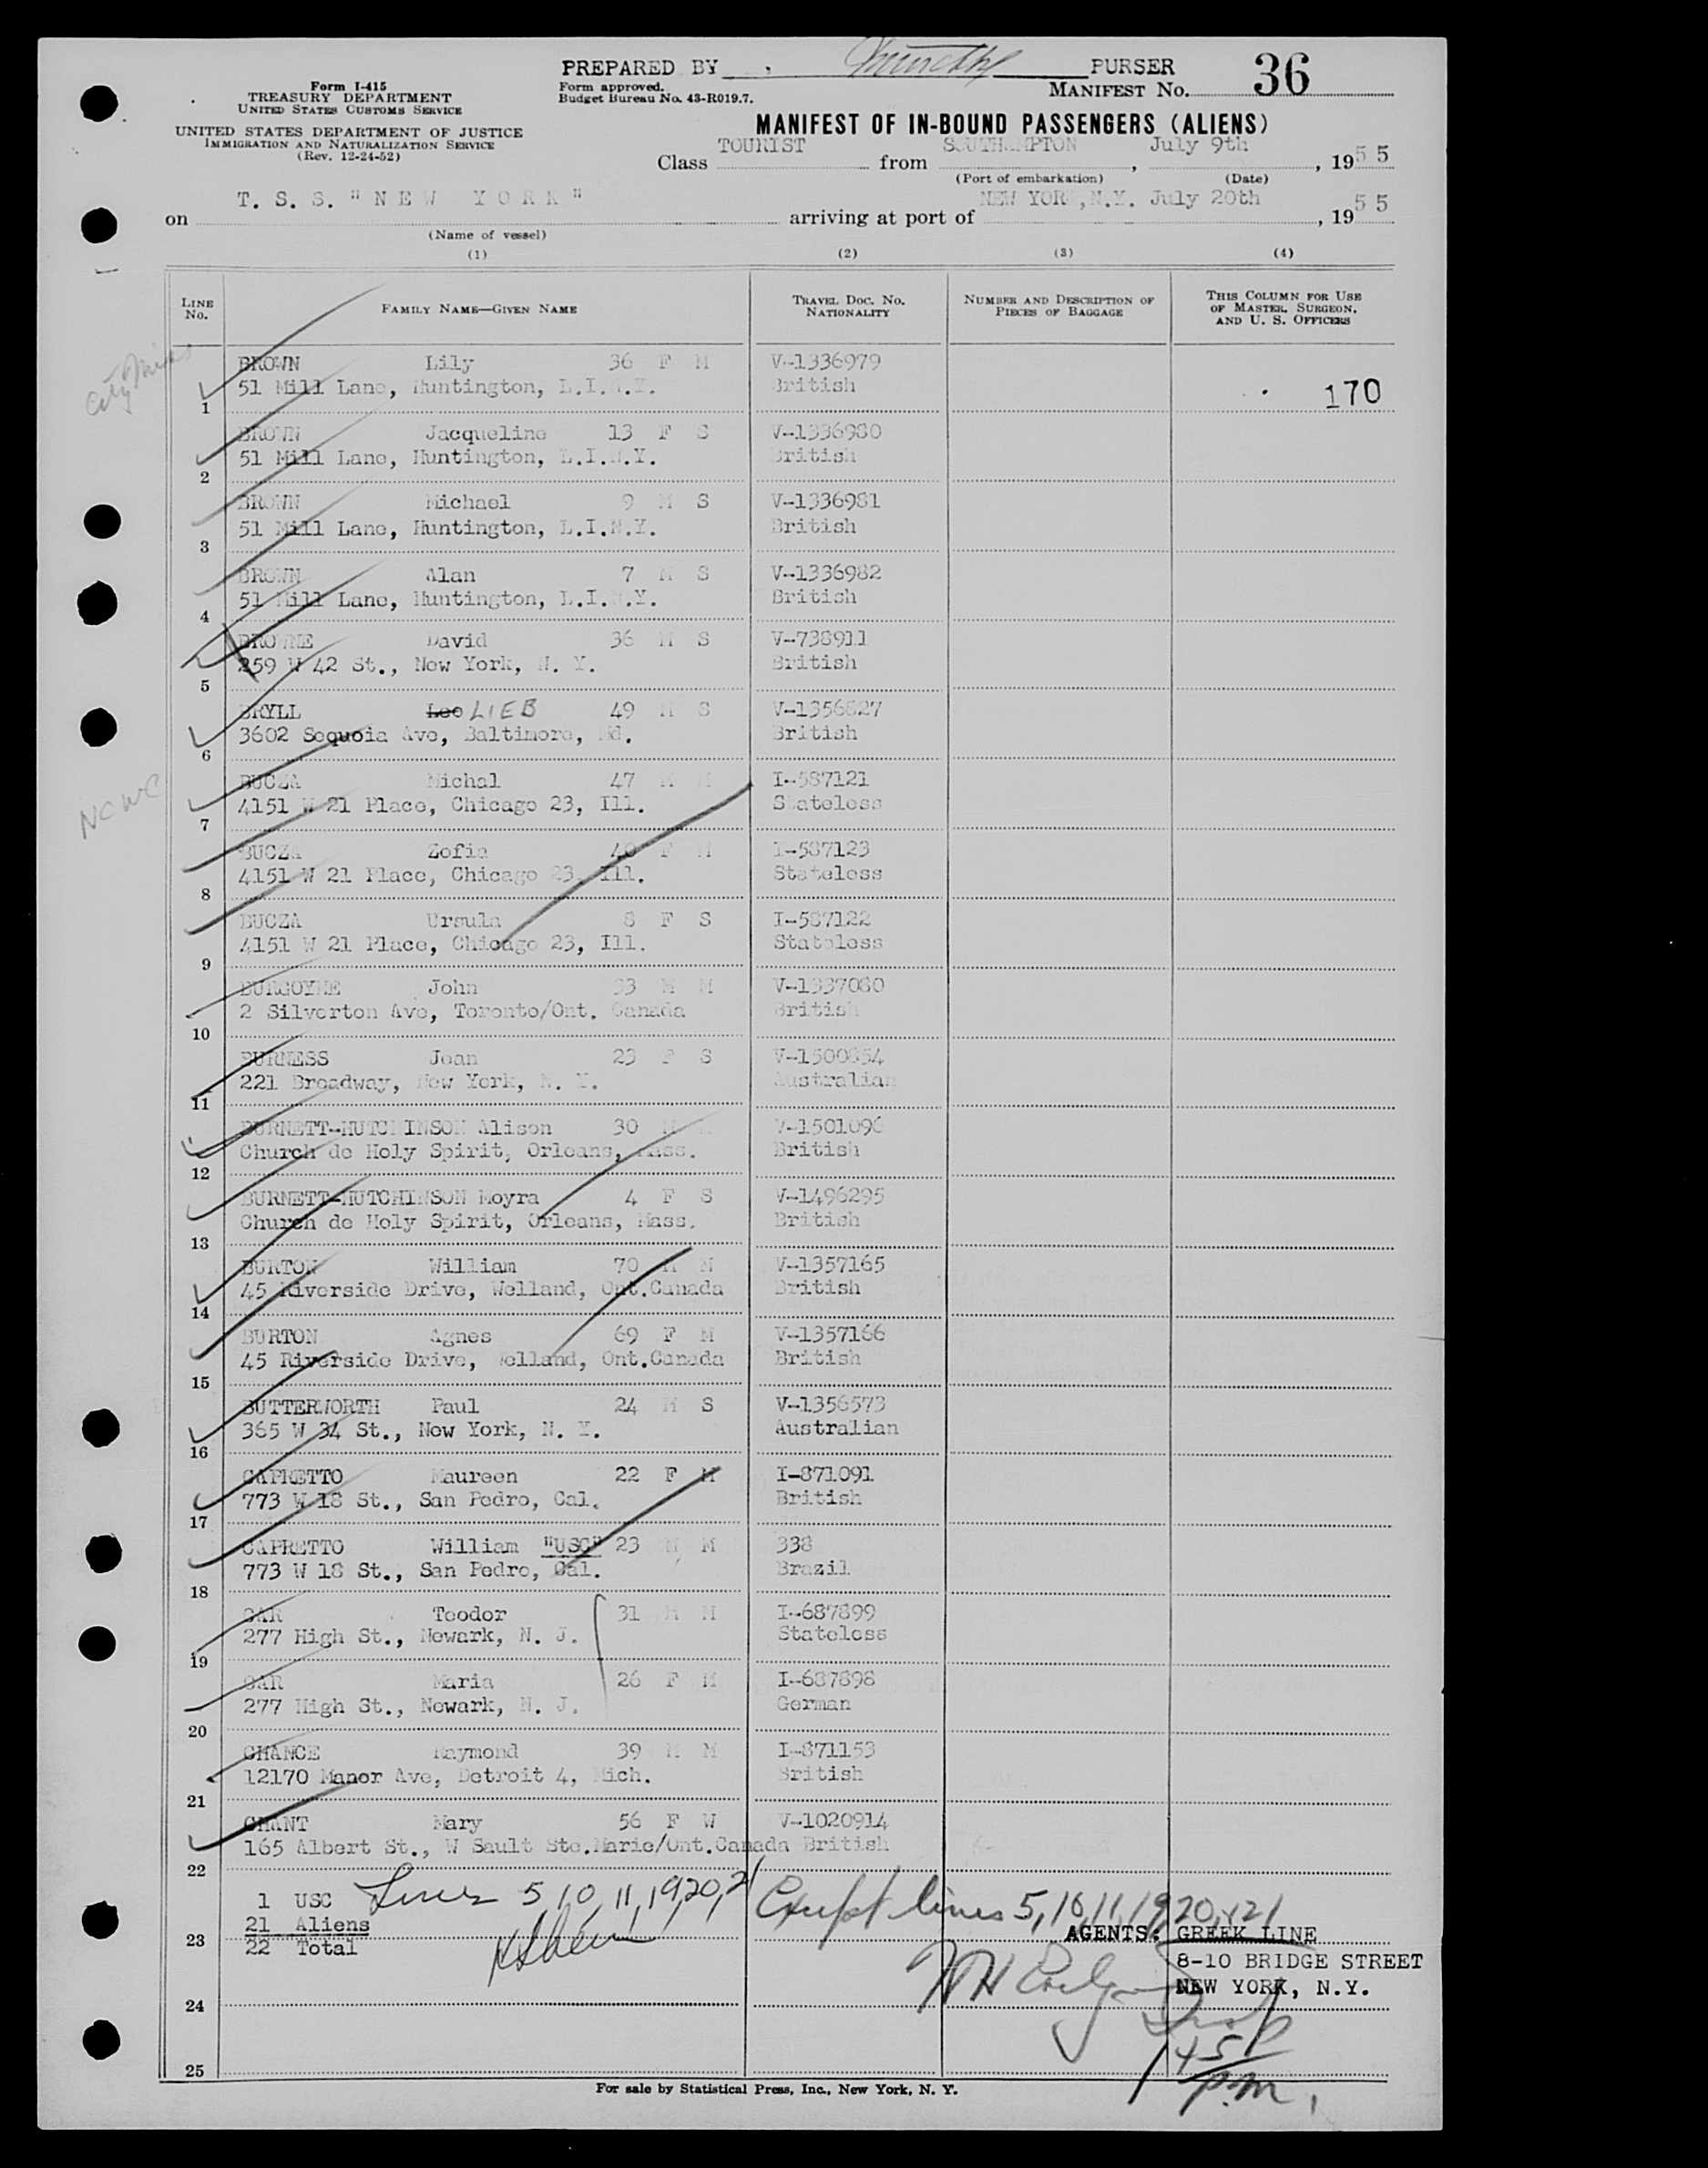 PREPARED BY PURSER
Form I-415
TREASURY DEPARTMENT
UNITED STATES CUSTOMS SERVICE
UNITED STATES DEPARTMENT OF JUSTICE
IMMIGRATION AND NATURALIZATION SERVICE
(Rev. 12-24-52)
Form approved.
Budget Bureau No. 43-R019.7.
MANIFEST NO. 36
MANIFEST OF IN-BOUND PASSENGERS (ALIENS)
Class TOURIST from SOUTHAMPTON, July 9th, 1955
(Port of embarkation) (Date)
on T. S. S. "NEW YORK" arriving at port of NEW YORK, N.Y. July 20th, 1955
(Name of vessel)
(1) (2) (3) (4)
LINE NO. FAMILY NAME—GIVEN NAME TRAVEL DOC. NO. NATIONALITY NUMBER AND DESCRIPTION OF PIECES OF BAGGAGE THIS COLUMN FOR USE OF MASTER, SURGEON, AND U. S. OFFICERS
BROWN Lily 36 F M V-1336979
1 51 Mill Lane, Huntington, L.I.N.Y. British 170
BROWN Jacqueline 13 F S V-1336980
2 51 Mill Lane, Huntington, L.I.N.Y. British
BROWN Michael 9 M S V-1336981
3 51 Mill Lane, Huntington, L.I.N.Y. British
BROWN Alan 7 M S V-1336982
4 51 Mill Lane, Huntington, L.I.N.Y. British
BROWNE David 36 M S V-738911
5 259 W 42 St., New York, N. Y. British
BRYLL Leo LIEB 49 M S V-1356827
6 3602 Sequoia Ave, Baltimore, Md. British
BUCZA Michal 47 M M I-587121
7 4151 W 21 Place, Chicago 23, Ill. Stateless
NCWC
BUCZA Zofia 40 F M I-587123
8 4151 W 21 Place, Chicago 23, Ill. Stateless
BUCZA Ursula 8 F S I-587122
9 4151 W 21 Place, Chicago 23, Ill. Stateless
BURGOYNE John 33 M M V-1337080
10 2 Silverton Ave, Toronto/Ont. Canada British
BURNESS Joan 23 F S V-1500854
11 221 Broadway, New York, N. Y. Australian
BURNETT-HUTCHINSON Alison 30 M V-1501096
12 Church de Holy Spirit, Orleans, Mass. British
BURNETT-HUTCHINSON Moyra 4 F S V-1496295
13 Church de Holy Spirit, Orleans, Mass. British
BURTON William 70 M M V-1357165
14 45 Riverside Drive, Welland, Ont. Canada British
BURTON Agnes 69 F M V-1357166
15 45 Riverside Drive, Welland, Ont. Canada British
BUTTERWORTH Paul 24 M S V-1356573
16 365 W 34 St., New York, N. Y. Australian
CAPRETTO Maureen 22 F M I-871091
17 773 W 18 St., San Pedro, Cal. British
CAPRETTO William "USC" 23 M M 338
18 773 W 18 St., San Pedro, Cal. Brazil
CAR Teodor 31 M M I-687899
19 277 High St., Newark, N. J. Stateless
CAR Maria 26 F M I-687898
20 277 High St., Newark, N. J. German
CHANCE Raymond 39 M M I-871153
21 12170 Manor Ave, Detroit 4, Mich. British
CHANT Mary 56 F W V-1020914
22 165 Albert St., W Sault Ste. Marie/Ont. Canada British
1 USC Lines 5, 10, 11, 19, 20, 21 Except lines 5, 10, 11, 19, 20, +21
21 Aliens
23 22 Total AGENTS: GREEK LINE
8-10 BRIDGE STREET
NEW YORK, N.Y.
24
25
145
p.m.
For sale by Statistical Press, Inc., New York, N. Y.